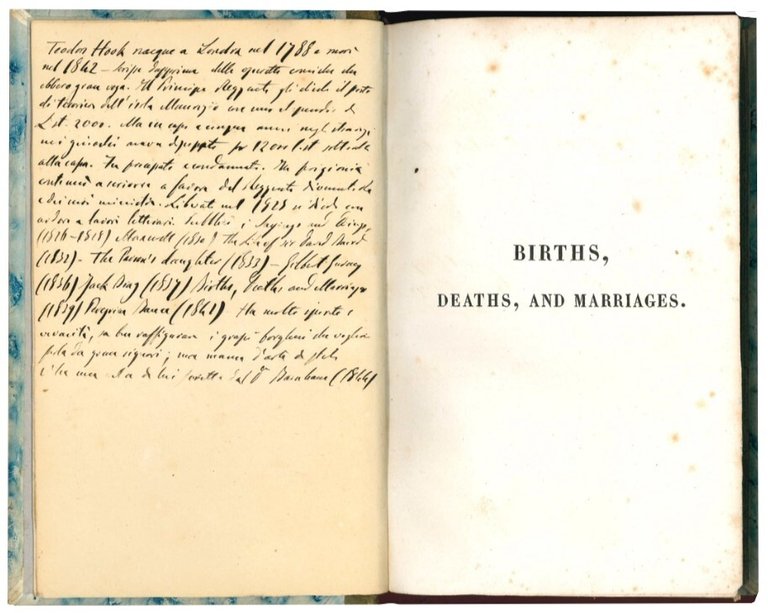 Teodor Hook nacque a Londra nel 1788 e morì
nel 1842 – scrisse dapprima delle operette comiche che
ebbero gran voga. Il Principe Reggente gli diede il posto
di tesoriere dell'isola Maurizio con uno stipendio di
Lst. 2000. Ma in capo a cinque anni negli
aveva 12000 lst
alla cassa. Fu processato e condannato. In prigionia
continuò a scrivere a favore del Reggente
e dei suoi ministri. Liberato nel 1825 si diede con
ardore a lavori letterari. Pubblicò i Sayings and Doings,
(1826-1828) Maxwell (1830) The Life of sir David Baird
(1832) - The Parson's daughter (1833) - Gilbert Gurney
(1836) Jack Brag (1837) Births, Deaths and Marriages
(1839) Peregrine Bunce (1841). Ha molto spirito e
vivacità, sa ben raffigurare i borghesi che
da gran signori; ma manca d'arte di stile
c'è una di lui scritta dal Barnham (1844)
BIRTHS,
DEATHS, AND MARRIAGES.